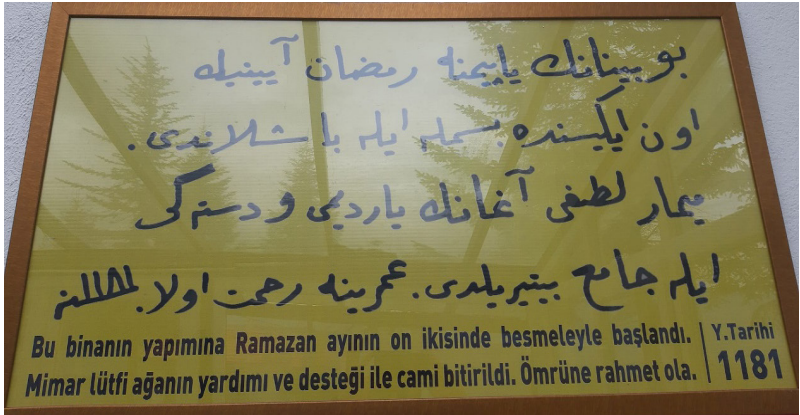 بو بينانك ياپيمنه رمضان آيينيك
اون ايكيسنده بسمله ايله باشلاندى.
ميمار لطفى آغانك يارديمى و دستگى
ايله جامع بيتيريلدى. عمرينه رحمت اولا.
Bu binanın yapımına Ramazan ayının on ikisinde besmeleyle başlandı.
Mimar lütfi ağanın yardımı ve desteği ile cami bitirildi. Ömrüne rahmet ola.
Y.Tarihi
1181